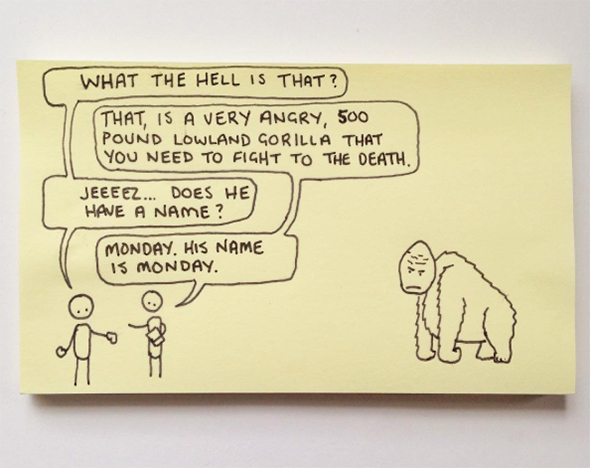 WHAT THE HELL IS THAT?
THAT, IS A VERY ANGRY, 500
POUND LOWLAND GORILLA THAT
YOU NEED TO FIGHT TO THE DEATH.
JEEEEZ... DOES HE
HAVE A NAME?
MONDAY. HIS NAME
IS MONDAY.